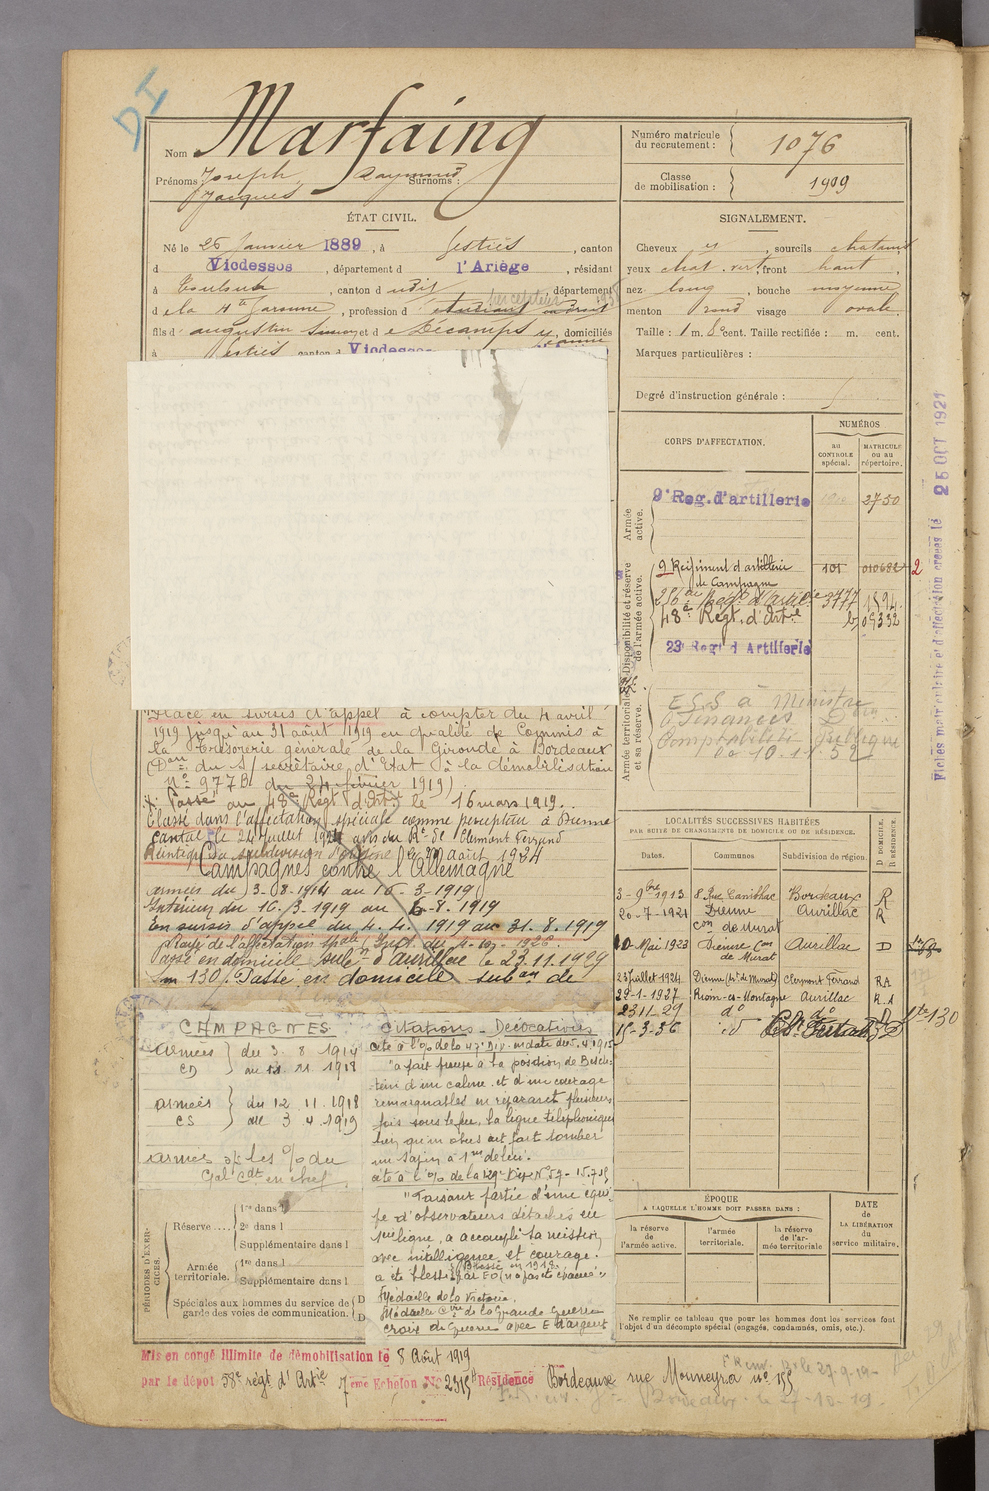 DI
Nom Marfaing
Prénoms Joseph, Raymond Surnoms :
Jacques
ÉTAT CIVIL.
Né le 26 Janvier 1889, à Lestiés, canton
d Vicdessos, département d l'Ariège, résidant
à Toulouse, canton d udit, département
percepteur
d e la Hte Garonne, profession d' étudiant en droit
fils d' augustin Simon et d e Décamps
domiciliés
à Lestiés canton d Vicdessos
Numéro matricule du recrutement : 1076
Classe de mobilisation : 1909
SIGNALEMENT.
Cheveux , sourcils chatains
yeux chat. vert, front haut
nez long, bouche moyenne
menton rond visage ovale.
Taille : 1 m. cent. Taille rectifiée : m. cent.
Marques particulières :
Degré d'instruction générale :
CORPS D'AFFECTATION.
NUMÉROS
au CONTROLE spécial.
MATRICULE ou au répertoire.
Armée active.
9e Reg. d'artillerie 2750
Disponibilité et réserve de l'armée active.
9 Régiment d'artillerie 101 010682 2
de Campagne
256me Regt d'artie 3777 1894
48e Regt. d'Artie 09332
23e Regt d Artillerie
Armée territoriale et sa réserve.
E.S.S à Ministre
Finances Don
Comptabilité Publique
10.11.52
Fiches matriculaire et d'affectation créées le 26 OCT 1921
Placé en sursis d'appel à compter du 4 avril
1919 jusqu'au 31 août 1919 en qualité de Commis à
la Trésorerie générale de la Gironde à Bordeaux
(Don du S/ secrétaire d'Etat à la démobilisation
No 977B1 du 24 février 1919)
Passé au 48e Regt d'Artie le 16 mars 1919.
Classé dans l'affectation spéciale comme percepteur à Dienne
Cantal le 24 Juillet 1924 avis du Rt de Clermont Ferrand
Réintégré sa subdivision d'origine le août 1924
Campagnes contre l'Allemagne
armées du 3-8-1914 au 15-3-1919
Intérieur du 16.3-1919 au 6-8.1919
En sursis d'appel du 4.4.1919 au 31.8.1919
Rayé de l'affectation spale
Passé en domicile subn d'Aurillac le 23.11.1929
130 Passé en domicile subon de
LOCALITÉS SUCCESSIVES HABITÉES
PAR SUITE DE CHANGEMENTS DE DOMICILE OU DE RÉSIDENCE.
D DOMICILE, R RÉSIDENCE.
Dates. Communes Subdivision de région.
3-9bre 1913 8 Rue Canihac Bordeaux R
20-7-1921 Dienne Aurillac R
Con de Murat
10-Mai 1923 Dienne Con Aurillac D
de Murat
23 juillet 1924 Dienne (Ct de Murat) Clermont Ferrand RA
29-1-1927 Riom-es-Montagne Aurillac R.A
23 11-29 do do D
15-3-36 id D
CAMPAGNES
armées } du 3.8 1914
CD } au 11 11 1918
armées } du 12 11 1918
CS } au 3 4 1919
armées s/ les O/ du
Gal Cdt en chef
Citations – Décorations
Cité à l'O/ de la 47e Div. en date du 5.4.1915
"a fait preuve à la position de
d'un calme et d'un courage
remarquables en réparant plusieurs
fois sous le feu, la ligne téléphonique
bien qu'un obus ait fait tomber
un sapin à 1m de lui."
cité à l'O/ de la 129e Divon No 57 - 15.7.18
"Faisant partie d'une équi
pe d'observateurs détachés en
1ere ligne, a accompli sa mission
avec intelligence et courage.
Blessé en 1918
a été blessé par EO (n'a pas été évacué)"
Médaille de la Victoire.
Médaille Cve de la Grande Guerre
Croix de Guerre avec E d'argent
PÉRIODES D'EXERCICES.
Réserve .... 1re dans l
2e dans l
Supplémentaire dans l
Armée territoriale. 1re dans l
Supplémentaire dans l
Spéciales aux hommes du service de garde des voies de communication. D
D
ÉPOQUE
A LAQUELLE L'HOMME DOIT PASSER DANS :
la réserve de l'armée active.
l'armée territoriale.
la réserve de l'armée territoriale
DATE
de
LA LIBÉRATION
du
service militaire.
Ne remplir ce tableau que pour les hommes dont les services font
l'objet d'un décompte spécial (engagés, condamnés, omis, etc.).
Mis en congé illimité de démobilisation le 8 Août 1919
par le dépôt 58e régt d'Artie 7eme Echelon No 2315 Résidence Bordeaux rue Mouneyra no 155
Bordeaux le 27-10-19.